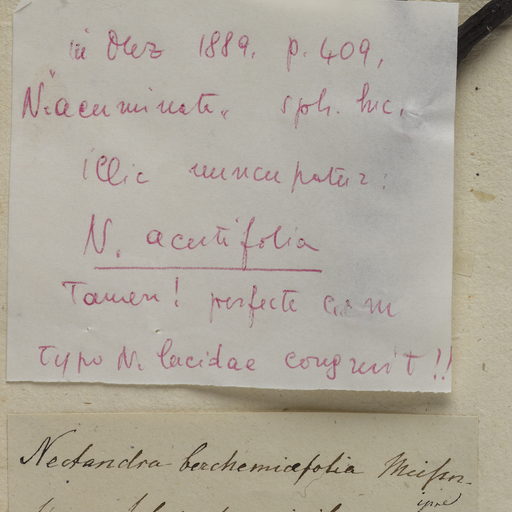 in Mez 1889. p. 409,
"N. acuminata" sph. hic,
illic nuncupatur:
N. acutifolia
Tamen! perfecte cum
typo N. lucidae congruit!!
Nectandra berchemiæfolia Meissn.
ipse